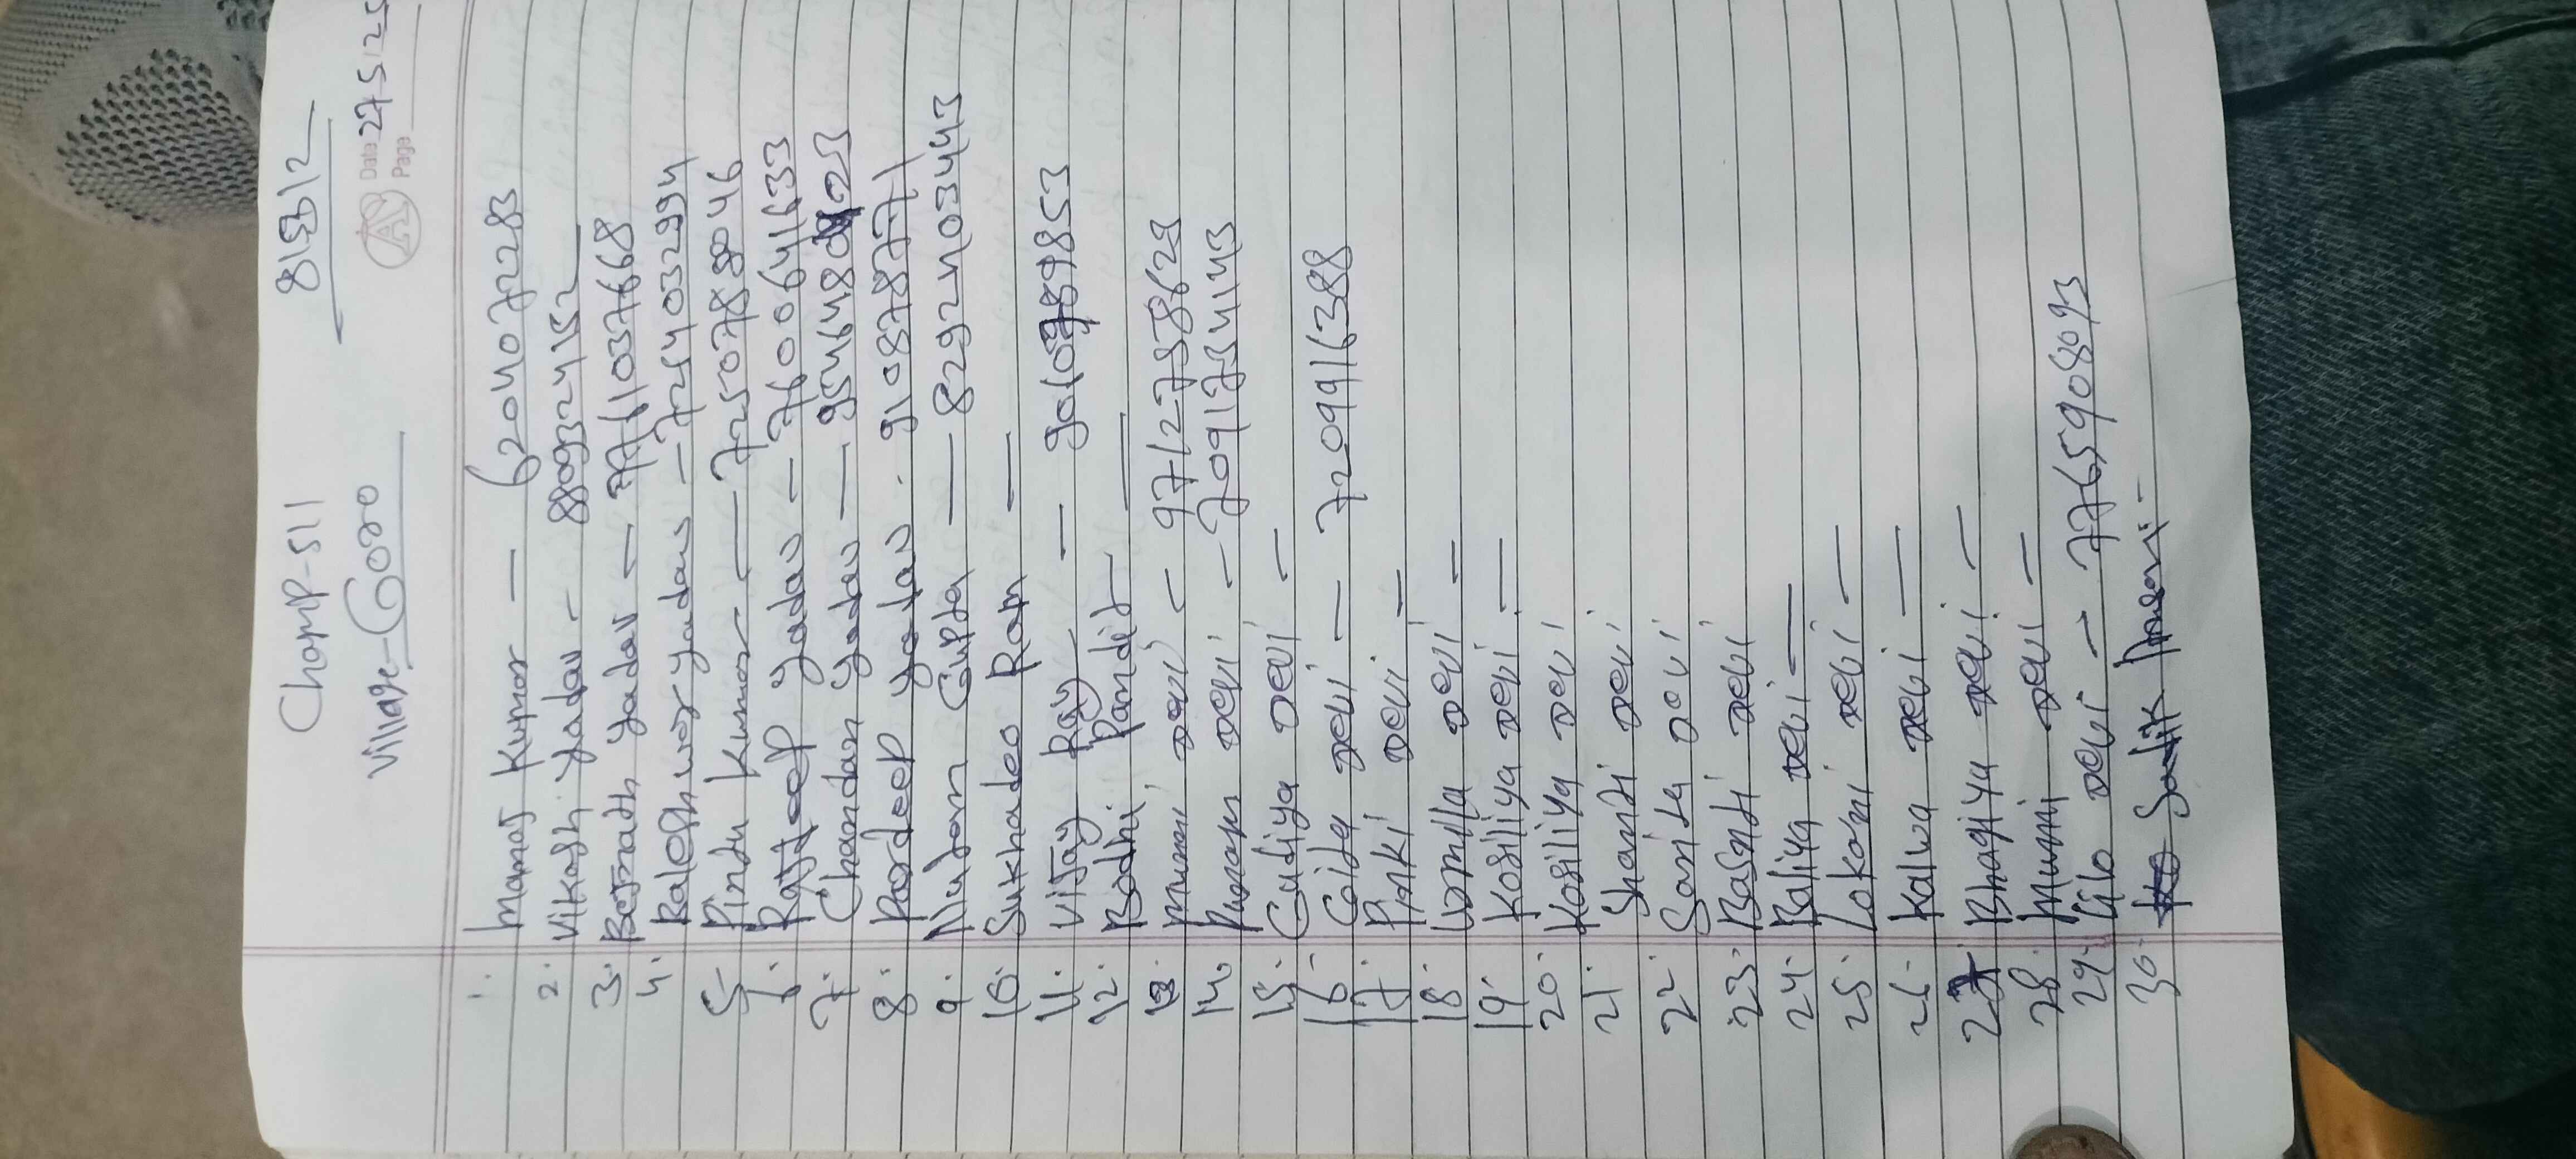 Champ-511 815312
Village-Goro
Date 27-5-25
Page
1. Manoj Kumar — 6204072283
2. Vikash Yadav - 8809324152
3. Bejnath Yadav — 7761037668
4. Baleshwar yadav - 7254032994
5- Pindu Kumar — 7250788046
6. Ratjeep Yadav - 7600641633
7. Chandan Yadav —
8. Pardeep Yadav. 9108787771
9. Nutan Gupta — 82924103443
10. Sukhadeo Ram —
11. Vijay Ray —
12. Bodhi Pandit —
13. Munni Devi - 9712758629
14. Devi - 7091754143
15. Gudiya Devi —
16- Gita Devi — 7209916388
17. Pinki Devi. —
18. Urmilla Devi —
19. Kosiliya Devi —
20. Kosiliya Devi
21. Shanti Devi
22- Sarita Devi
23. Basnti Devi
24. Baliya Devi —
25. Lokani Devi —
26. Kalwa Devi —
27. Bhagiya Devi —
28. Munni Devi —
29. Lilo Devi - 7765908093
30. Sadik Ansari -